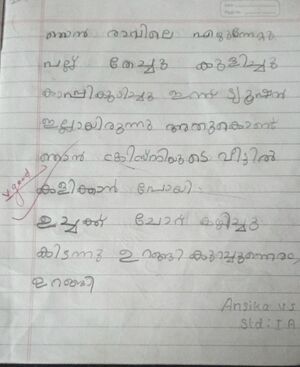 ഞാൻ രാവിലെ എഴുന്നേറ്റു
പല്ല് തേച്ചു കുളിച്ചു
കാപ്പികുടിച്ചു ഇന്ന് ട്യൂഷൻ
ഇല്ലായിരുന്നു അതുകൊണ്ട്
ഞാൻ വീട്ടിൽ
കളിക്കാൻ പോയി.
ഉച്ചക്ക് ചോറ് കഴിച്ചു
കിടന്നു ഉറങ്ങി കുറച്ചുനേരം
ഉറങ്ങി
v.good
Ansika v s
Std: I A